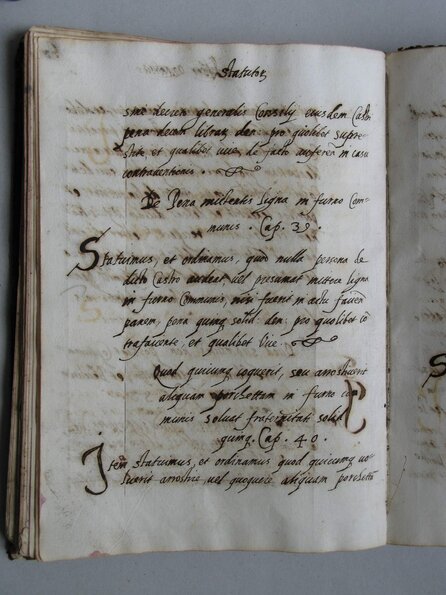 Statutor
sine decreto generalis Consilÿ eiusdem Castri
pena decem librar den: pro quolibet
et qualibet vice de facto auferen in casu
contraventionis .
De Pena mictentis ligna in furno Com-
munis . Cap. 39.
Statuimus, et ordinamus, quod nulla persona de
dicto Castro audeat, vel presumat mictere ligna
in furno Communis, nisi fuerit in actu facien
panem, pena quinq solid: den: pro quolibet co
trafaciente, et qualibet vice.
Quod quicumq coquerit, seu arrostiverit
aliquam porchettam in furno co
munis solvat fraternitati solid
quinq. Cap. 40.
Item statuimus, et ordinamus quod quicumq vo-
luerit arrostire, vel quoquere aliquam porchettā